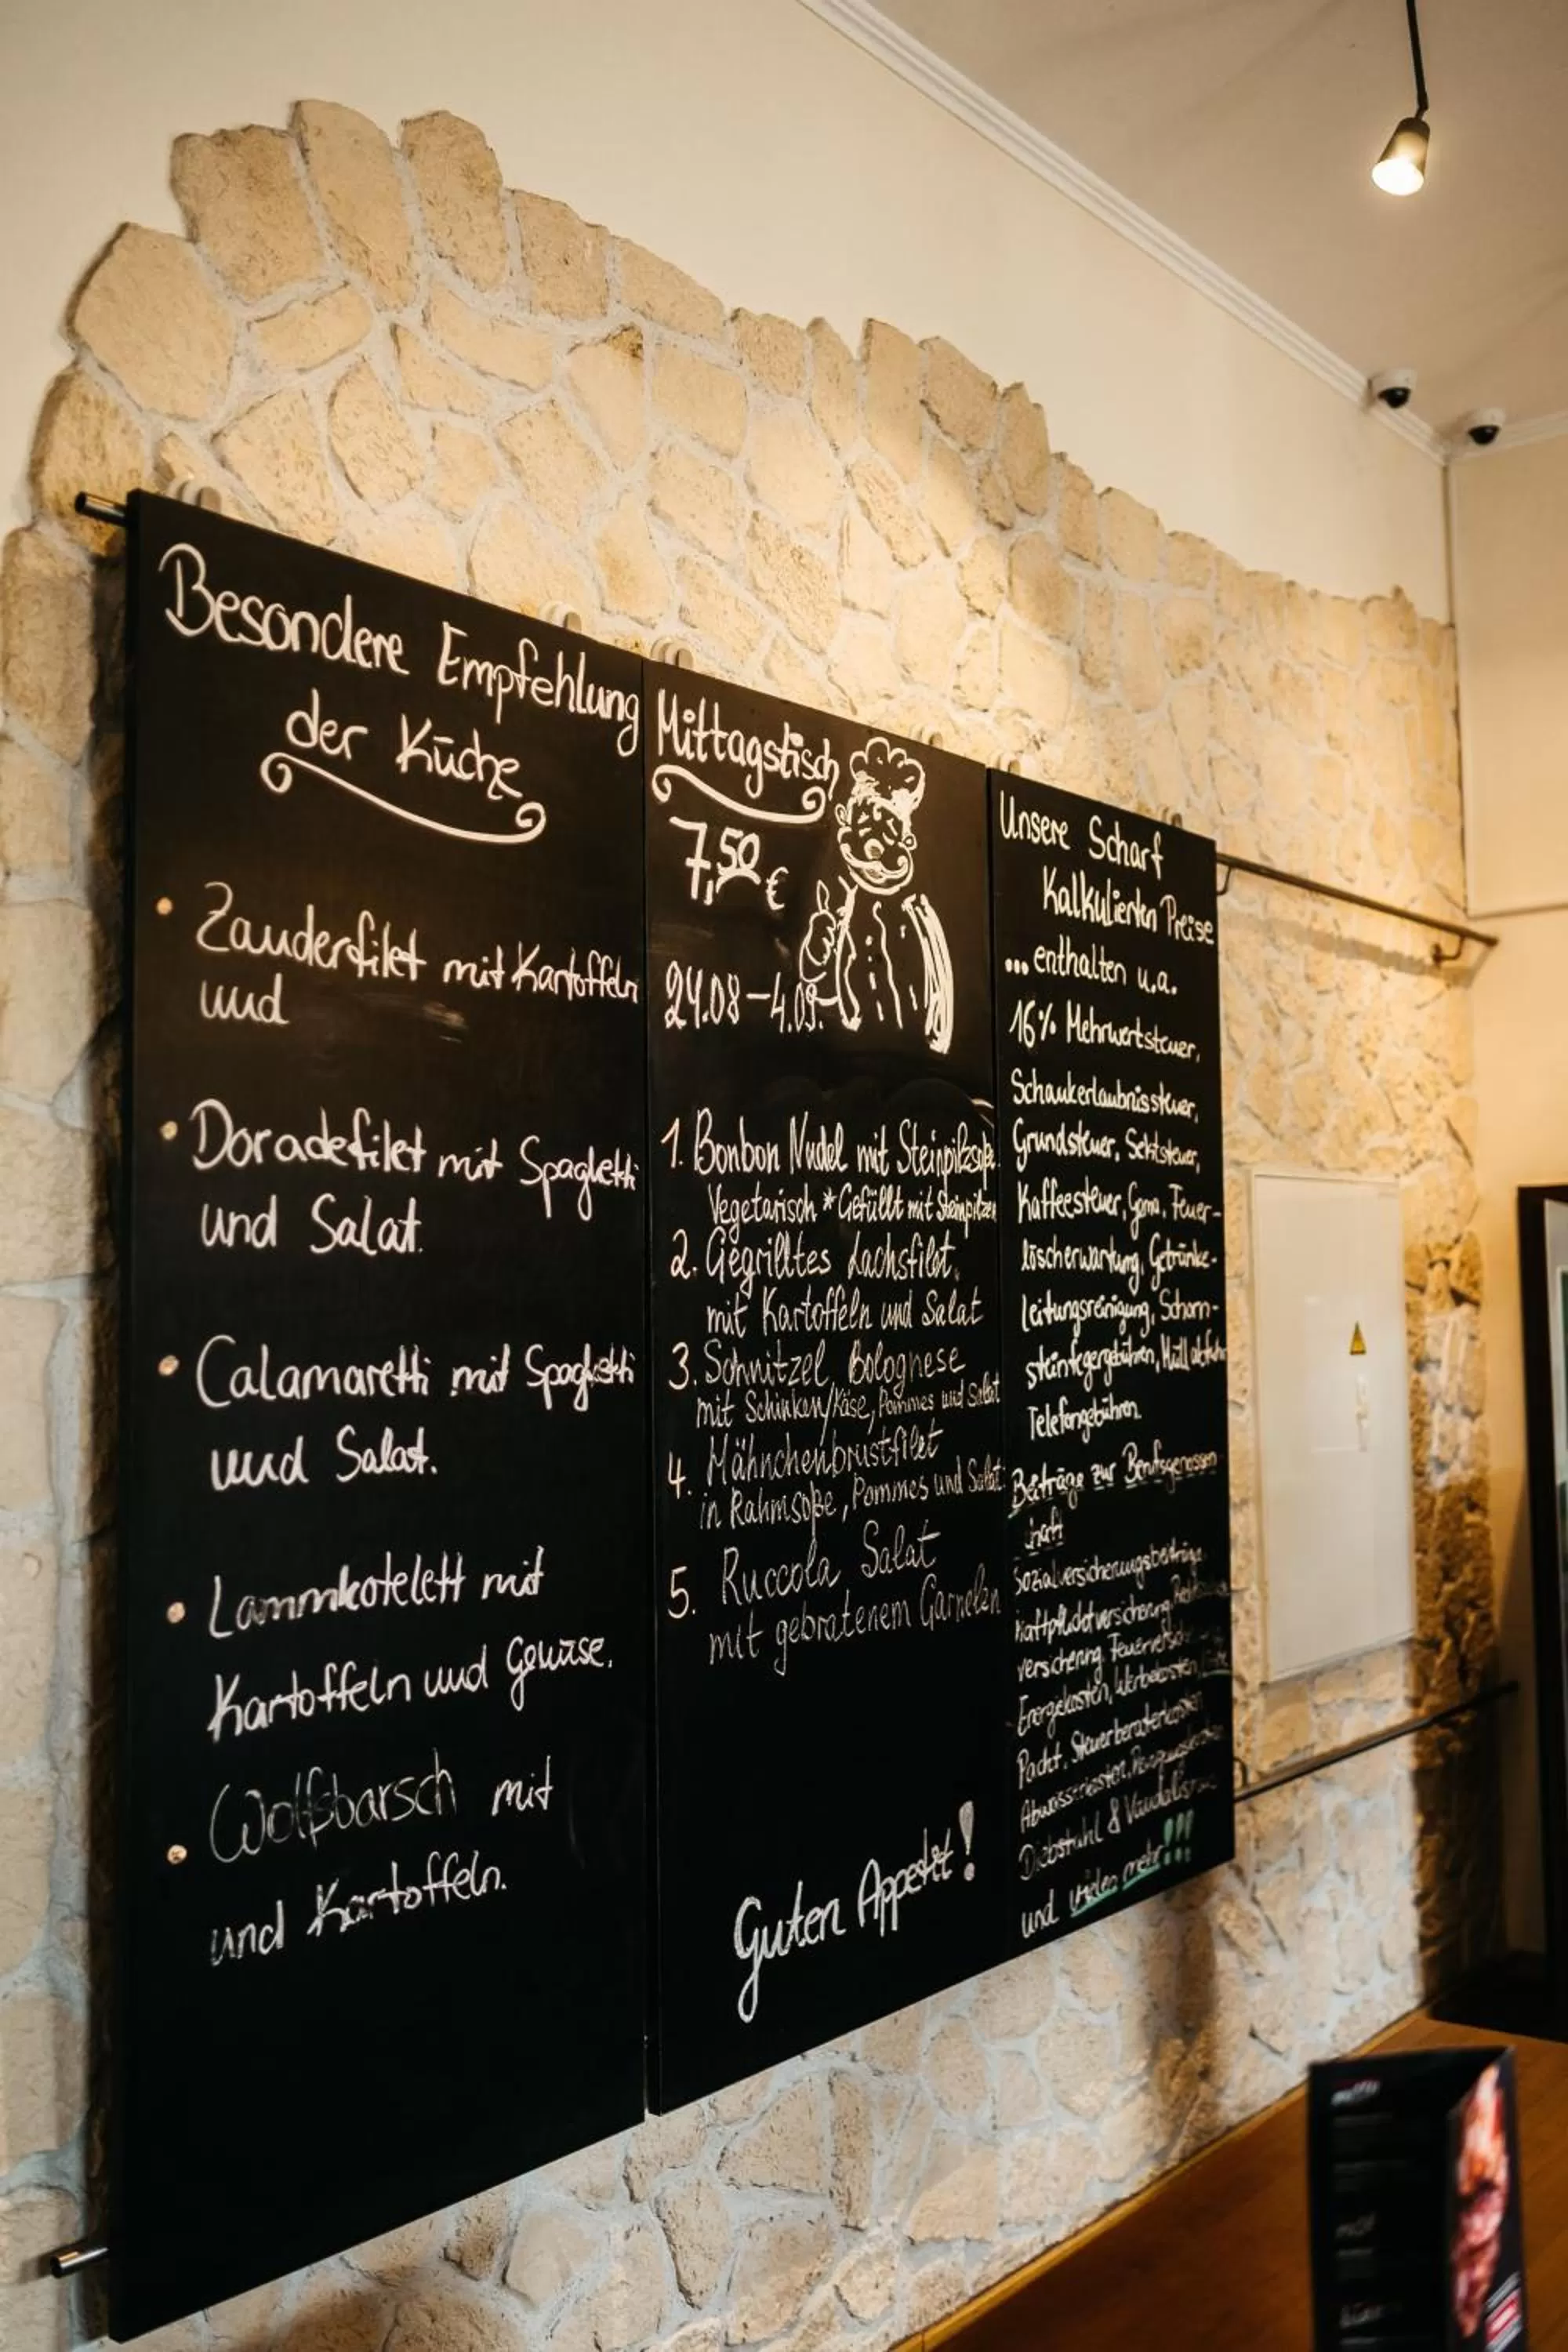 Besondere Empfehlung
der Küche
Zauderfilet mit Kartoffeln
und
Doradefilet mit Spaghetti
und Salat.
Calamaretti mit Spaghetti
und Salat.
Lammkotelett mit
Kartoffeln und Gemüse.
Wolfsbarsch mit
und Kartoffeln.
Mittagstisch
7,50 €
24.08 – 4.09.
1. Bonbon Nudel mit Steinpilzsoße
Vegetarisch * Gefüllt mit Steinpilzen
2. Gegrilltes Lachsfilet,
mit Kartoffeln und Salat
3. Schnitzel Bolognese
mit Schinken/Käse, Pommes und Salat
4. Hähnchenbrustfilet
in Rahmsoße, Pommes und Salat
5. Ruccola Salat
mit gebratenem Garnelen
Guten Appetit!
Unsere Scharf
Kalkulierten Preise
...enthalten u.a.
16% Mehrwertsteuer,
Schankerlaubnissteuer,
Grundsteuer, Sektsteuer,
Kaffeesteuer, Gema, Feuer-
löscherwartung, Getränke-
leitungsreinigung, Schorn-
steinfegergebühren, Müllabfuhr
Telefongebühren.
Beiträge zur Berufsgenossen
schaft
Sozialversicherungsbeiträge
Haftpflichtversicherung,
versicherung,
Energiekosten, Werbekosten,
Pacht, Steuerberaterkosten
Abwasserkosten,
Diebstahl &
und vieles mehr!!!